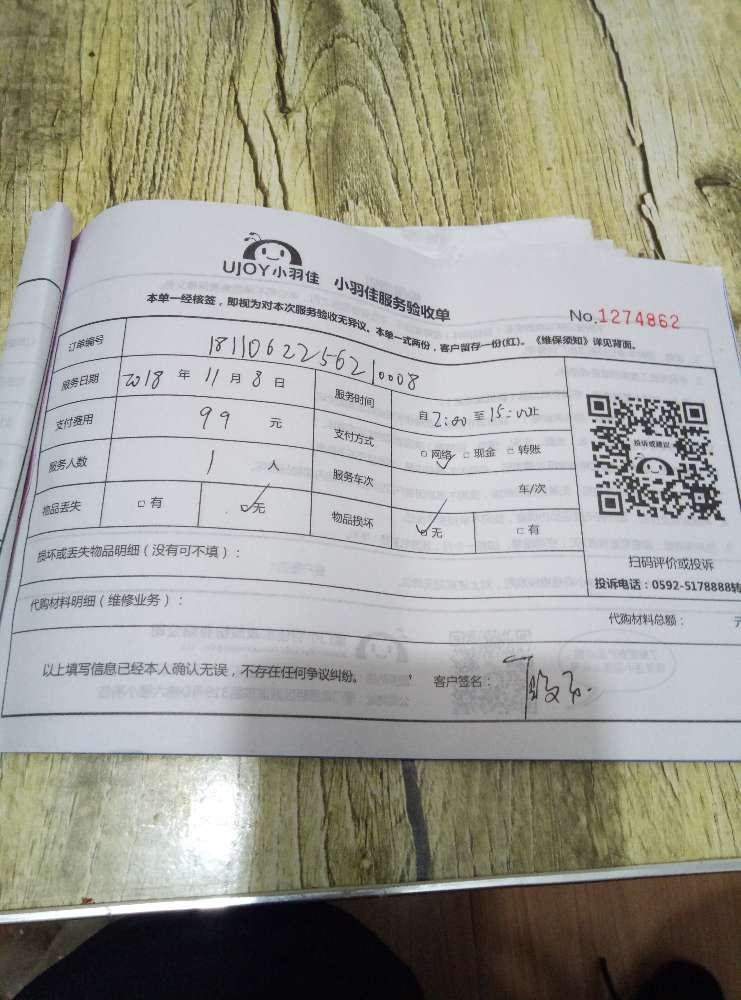 UJOY小羽佳 小羽佳服务验收单
No.1274862
本单一经核签，即视为对本次服务验收无异议。本单一式两份，客户留存一份(红)。《维保须知》详见背面。
订单编号 1811062256210008
服务日期 2018 年 11 月 8 日 服务时间 自 2:00 至 15:00止
支付费用 99 元 支付方式 □网络 □现金 □转账
服务人数 1 人 服务车次 车/次
物品丢失 □有 □无 物品损坏 □无 □有
投诉或建议
扫码评价或投诉
投诉电话：0592-5178888转
损坏或丢失物品明细（没有可不填）：
代购材料明细（维修业务）： 代购材料总额： 元
以上填写信息已经本人确认无误，不存在任何争议纠纷。 客户签名：